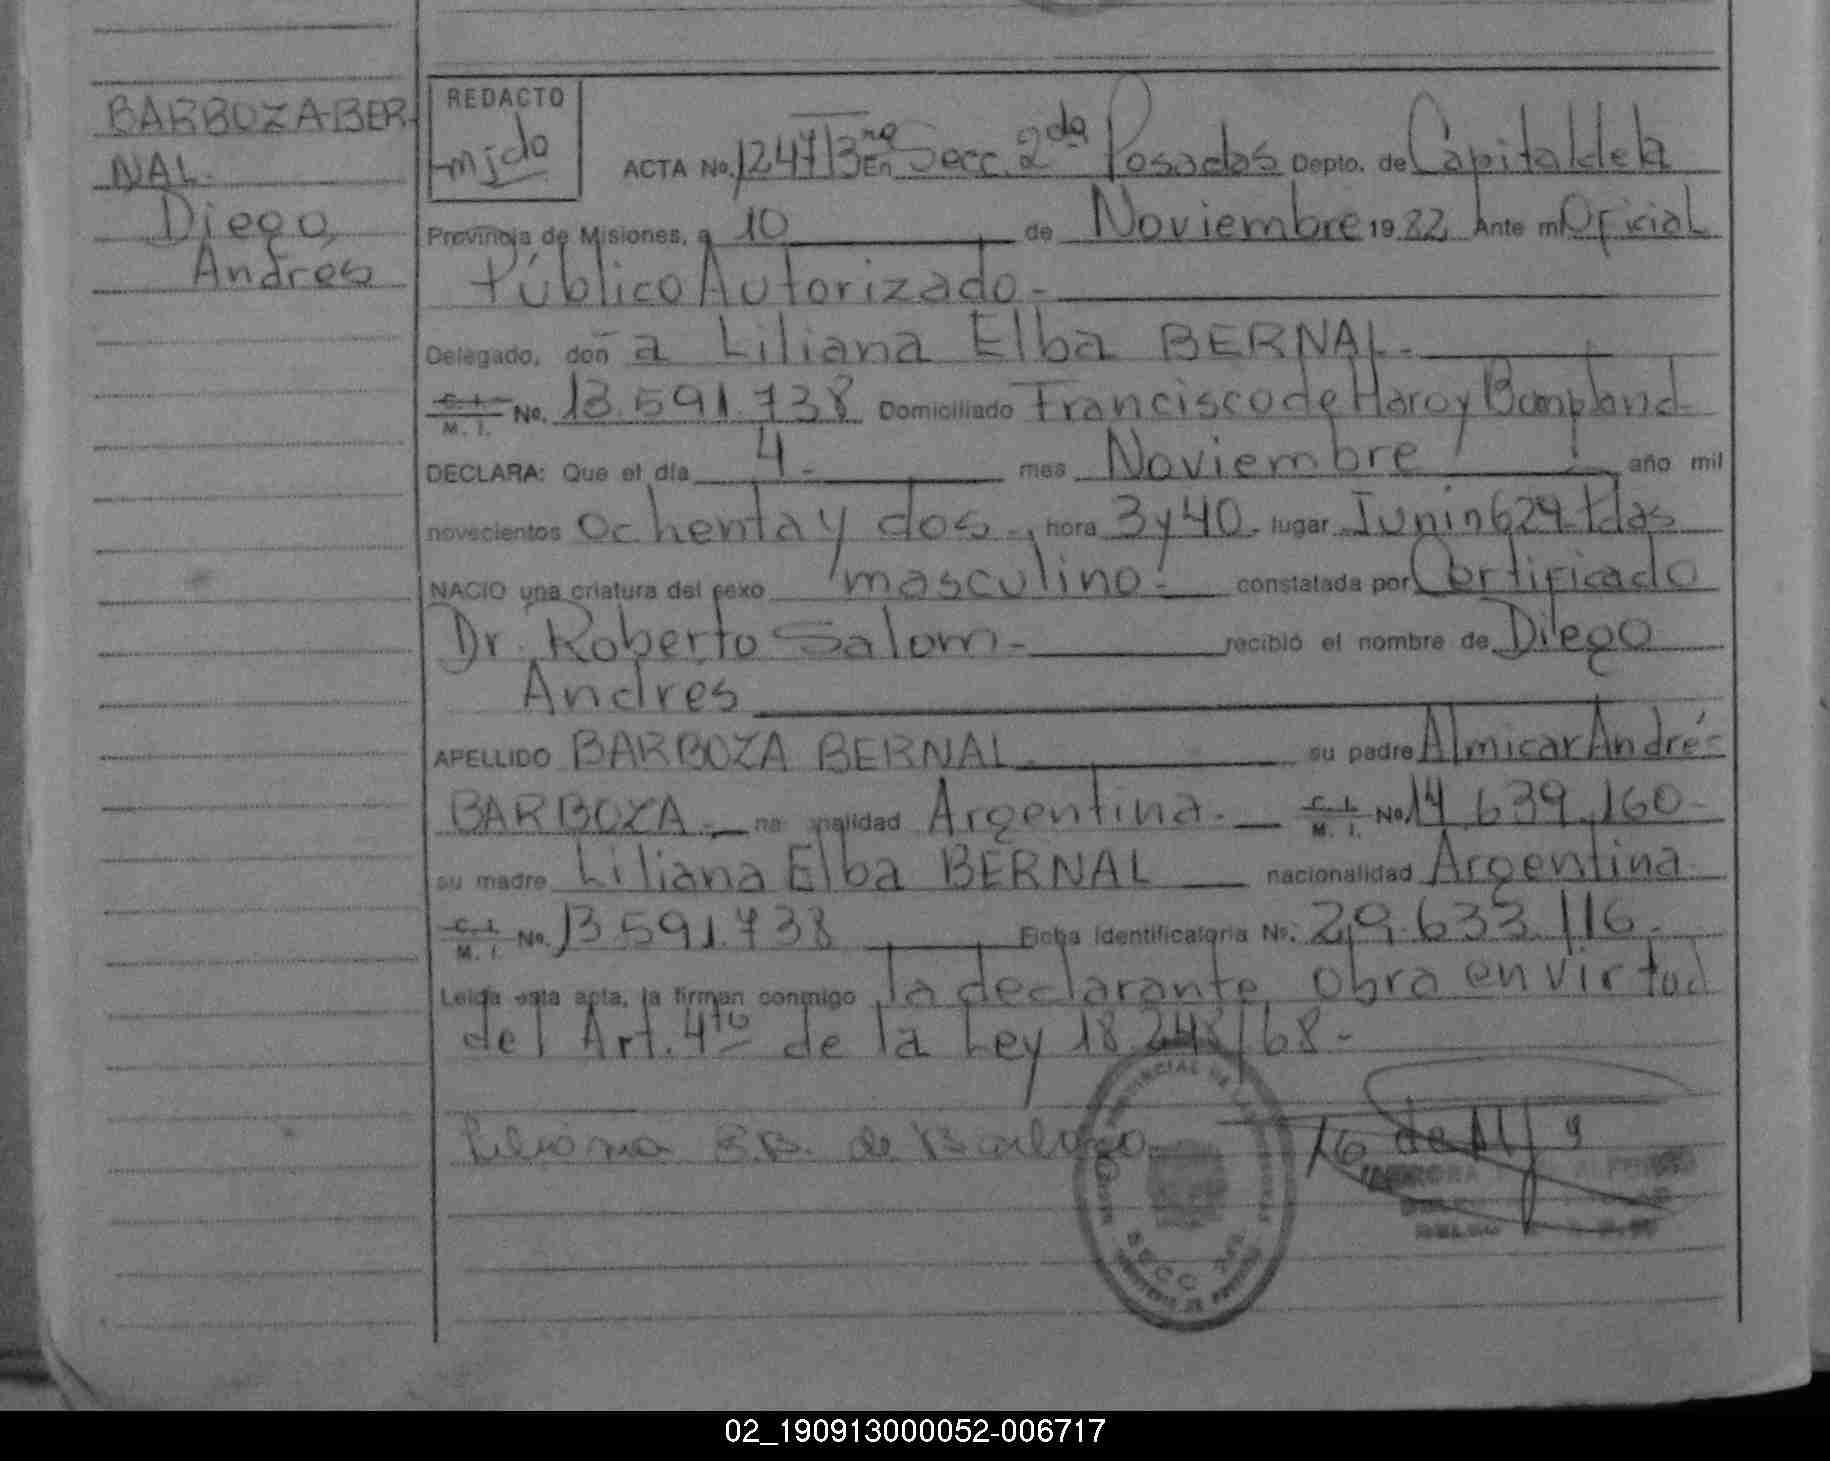 BARBOZA-BER-
NAL.
Diego,
Andres
REDACTO
mjdo
ACTA No. 1247/3ra En Secc. 2da Posadas Depto. de Capital de la
Provincia de Misiones, a 10 de Noviembre 1982 Ante mi Oficial
Público Autorizado.-
Delegado, don a Liliana Elba BERNAL.-
C. I. M. I. No. 13.591.738 Domiciliado Francisco de Haro y Bompland
DECLARA: Que el día 4.- mes Noviembre año mil
novecientos ochenta y dos.-, hora 3y40.- lugar Junin 629 Pdas
NACIO una criatura del sexo masculino.- constatada por Certificado
Dr. Roberto Salom.- recibió el nombre de Diego
Andres
APELLIDO BARBOZA BERNAL.- su padre Almicar Andrés
BARBOZA.- nacionalidad Argentina.- C. I. M. I. No. 14.639.160-
su madre Liliana Elba BERNAL nacionalidad Argentina
C. I. M. I. No. 13.591.738 Ficha Identificatoria No. 29.633.116.-
Leida esta acta, la firman conmigo la declarante, obra en virtud
del Art. 4to de la Ley 18.248/68.-
Liliana E.B. de Barboza
SECC
02_190913000052-006717